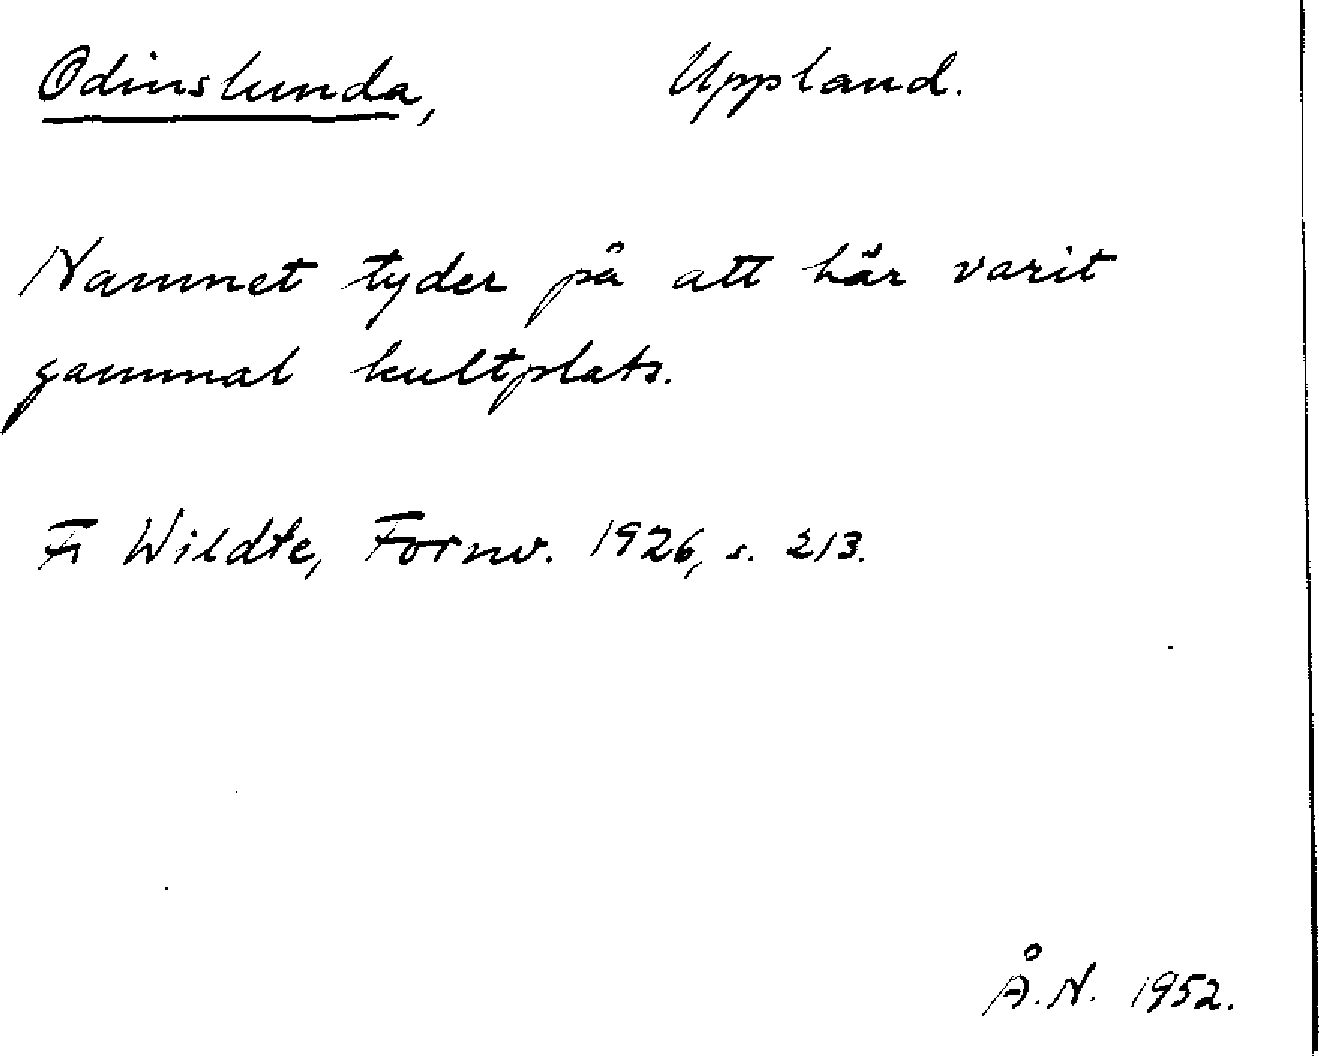 Odinslunda, Uppland.
Namnet tyder på att här varit
gammal kultplats.
Fr Wildte, Fornv. 1926, s. 213.
Å.N. 1952.